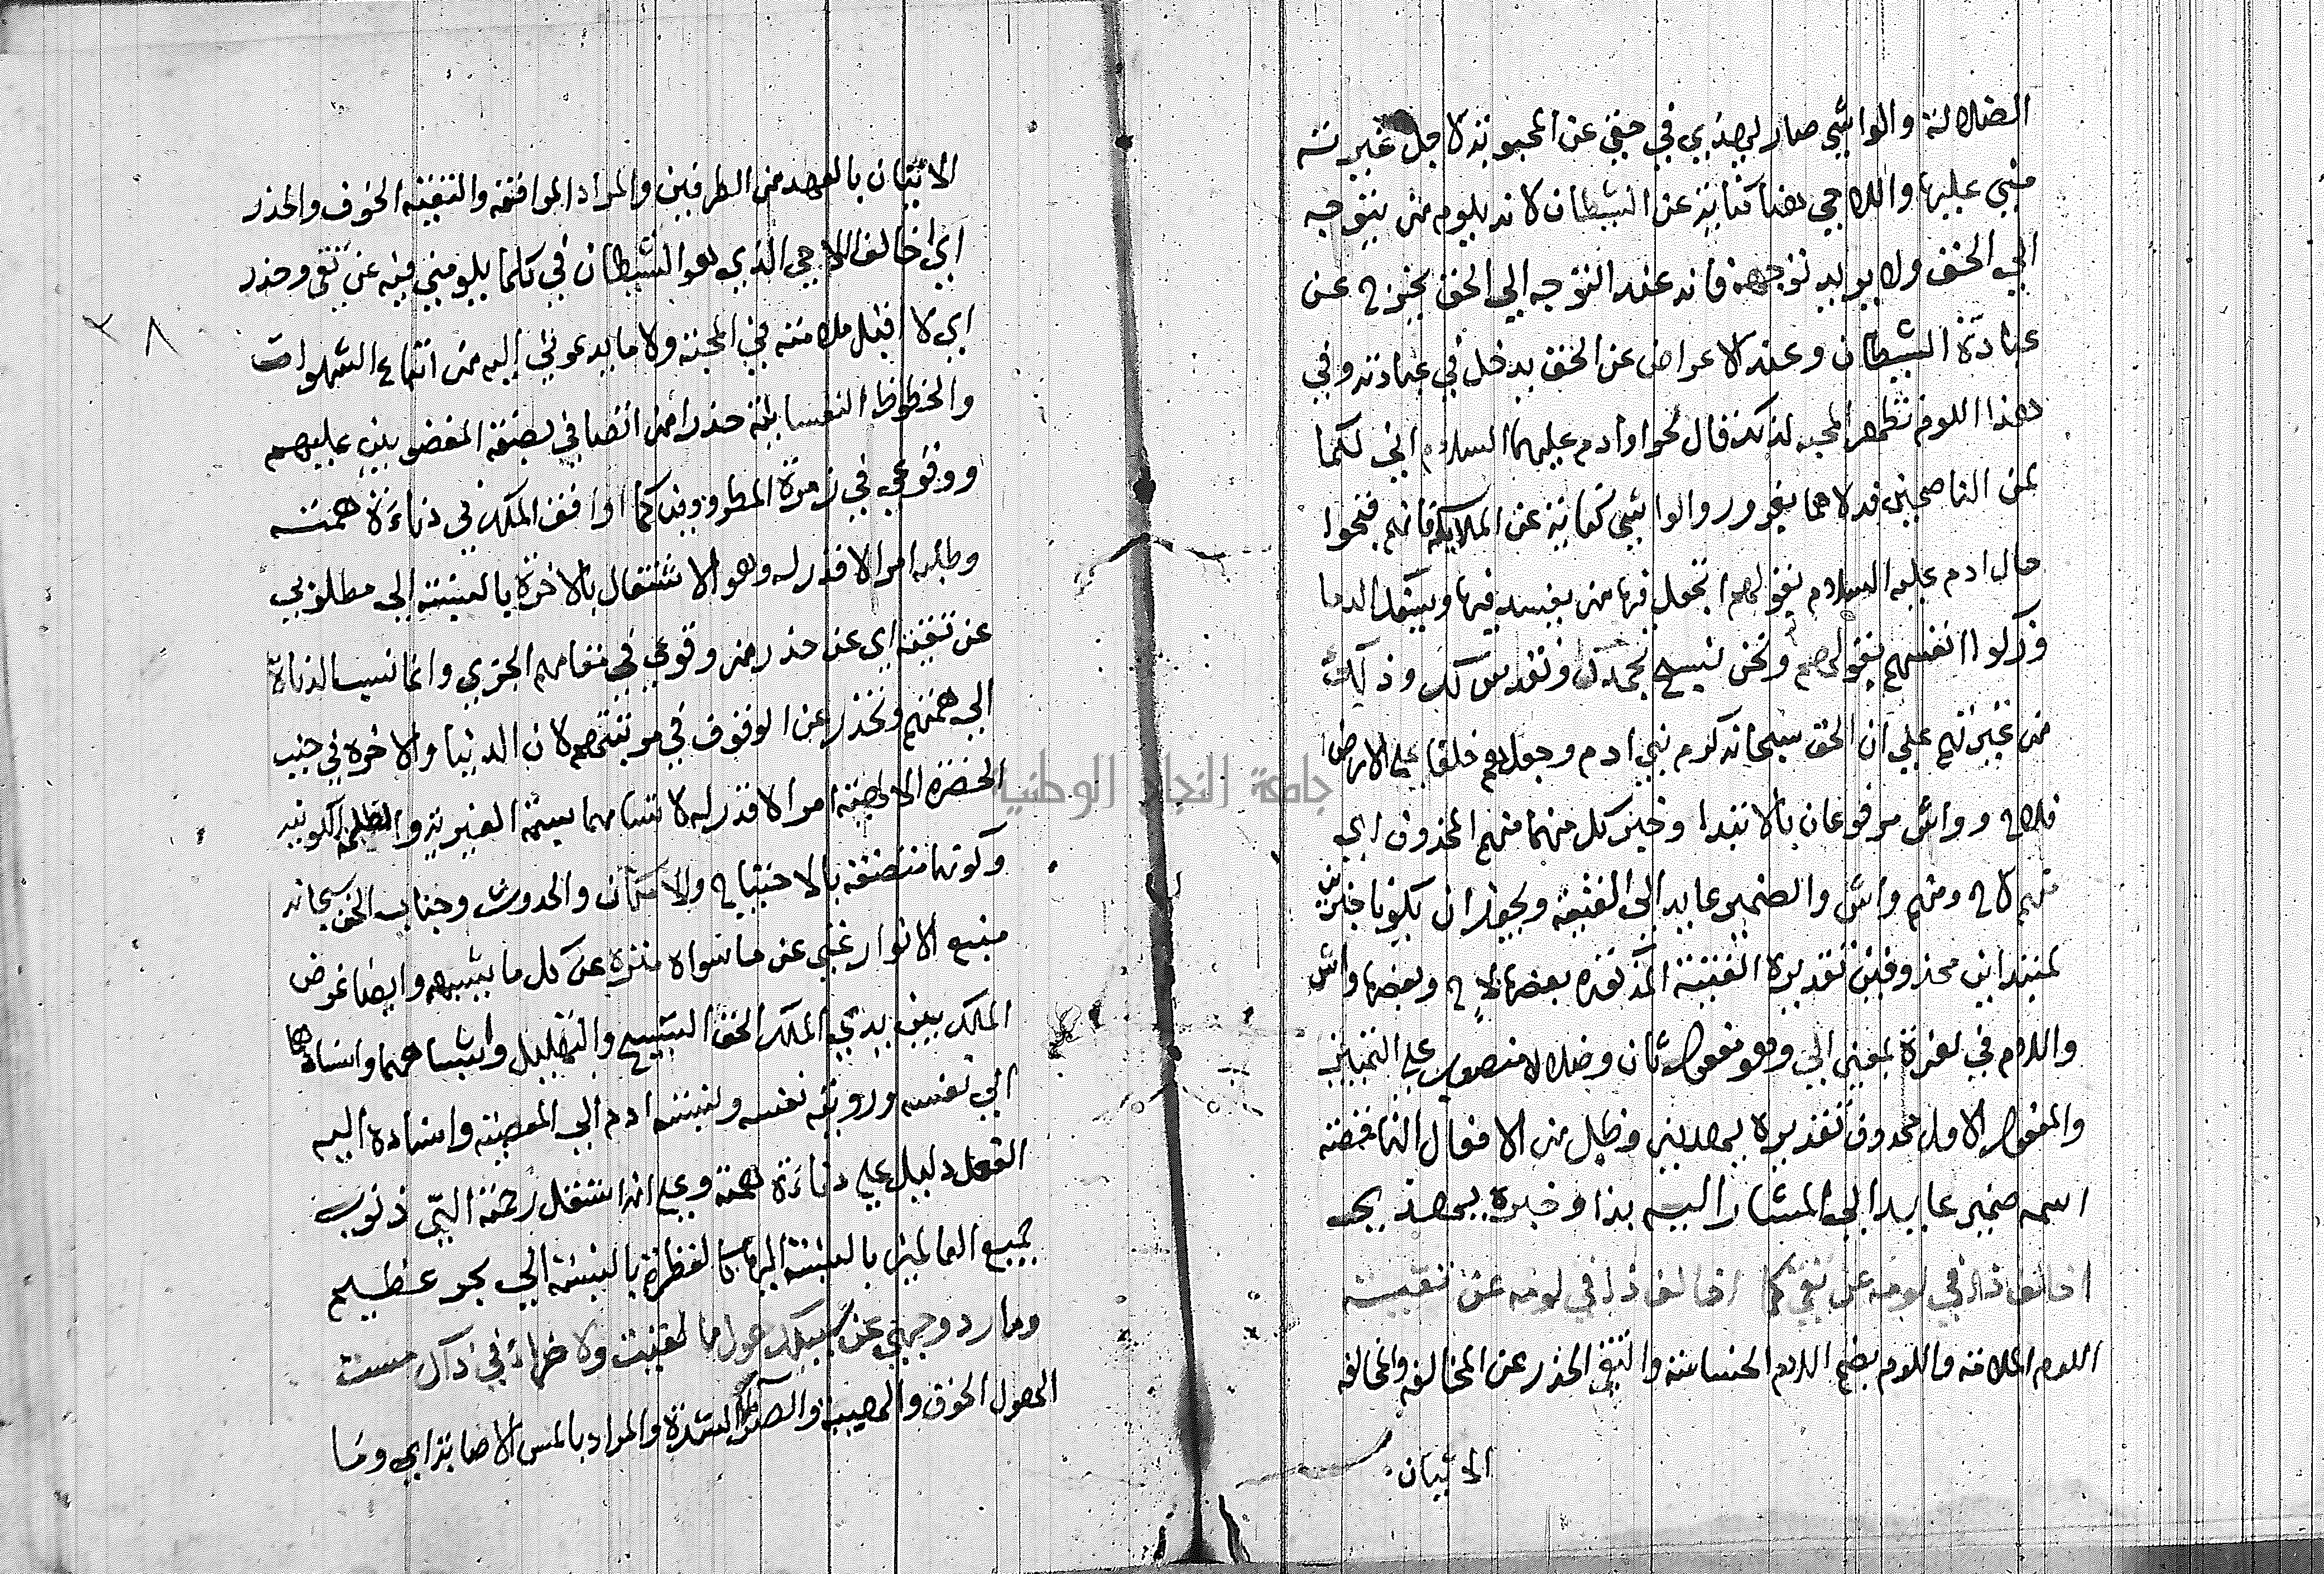 الضلالة والواشي صار يهذي في حقي عن المحبوبة لاجل غيرته
مني عليها واللاحي هنا كناية عن الشيطان لانه يلوم من يتوجه
الي الحق ولا يريد توجهه فانه عند التوجه الي الحق يخرج عن
عبادة الشيطان وعند الاعراض عن الحق يدخل في عبادته وفي
هذا اللوم تظهر المحبه لذلك قال لحوا وادم عليهما السلام اني لكما
لمن الناصحين فدلاهما بغرور والواشي كناية عن الملايكة فانهم فتحوا
حال ادم عليه السلام بقولهم اتجعل فيها من يفسد فيها ويسفك الدما
وزكوا انفسهم بقولهم ونحن نسبح بحمدك ونقدس لك وذلك
من غيرتهم علي ان الحق سبحانه كرم بني ادم وجعلهم خلفا علي الارض
فلاح وواش مرفوعان بالابتدا وخبر كل منهما منهم المحذوف اي
منهم لاح ومنهم واش والضمير عايد الي الفئيه ويجوز ان يكونا خبرين
لمبتداين محذوفين تقديره الفئية المذكوره بعضها لاح وبعضها واش
واللام في لغرة بمعني الي وهو مفعول ثان وضلالا منصوب علي التمييز
والمفعول الاول محذوف تقديره يهديني وظل من الافعال الناقصة
اسمه ضمير عايد الي المشار اليه بذا وخبره يهذي بي
اخالف ذا في لومه عن تقي كما اخالف ذا في لومه عن تقية
اللوم الملامة واللوم بضم اللام الخساسة والتقي الحذر عن المخالفه والمخالفه
الاتيان
الاتيان بالعهد من الطرفين والمراد الموافقة والتقية الخوف والحذر
اي اخالف اللاحي الذي هو الشيطان في كلما يلومني فيه عن تقي وحذر
اي لا اقبل ملامته في المحبة ولا ما يدعوني اليه من اتباع الشهوات
والحظوظ النفسانية حذرا من اتصافي بصفة المغضوبين عليهم
ووقوعي في زمرة المطرودين كما اوافق الملك في دناءة همته
وطلبه امرا لا قدر له وهو الاشتغال بالاخرة بالنسبة الي مطلوبي
عن تقية اي عن حذر من وقوعي في مقامهم الجزي وانما نسب الدناة
الي همتهم وتحذر عن الوقوف في مرتبتهم لان الدنيا والاخره في جنب
الحضرة الالهية امرا لا قدر له لاتسامهما بسمة الغيرية والظلمة الكونية
وكونهما متصفة بالاحتياج والامكان والحدوث وجناب الحق سبحانه
منبع الانوار غني عن ما سواه منزه عن كل ما يشبهه وايضا غرض
الملك بين يدي الملك الحق التسبيح والتهليل وانتساهما واسنادهما
الي نفسه وروية نفسه ونسبة ادم الي المعصية واسناده اليه
الفعل دليل علي دناءة همته وعلي انه استقل رحمة التي ذنوب
جميع العالمين بالنسبة اليها كالقطرة بالنسبة الي بحر عظيم
وما رد وجهي عن سبيلك هول ما لقيت ولا ضراء في ذاك مست
الهول الخوف والمصيبة والضراء الشدة والمراد بالمس الاصابة اي وما